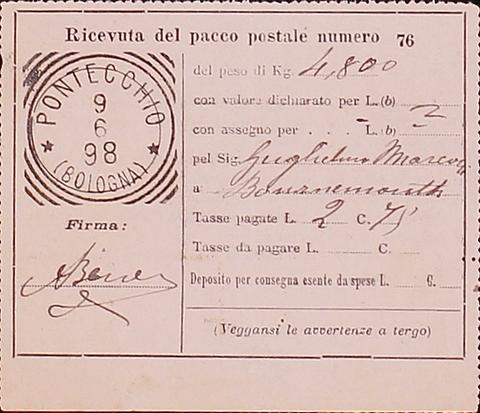 Ricevuta del pacco postale numero 76
PONTECCHIO
9
6
98
(BOLOGNA)
Firma:
del peso di Kg. 4,800
con valore dichiarato per L. (b)
con assegno per . . . - L. (b) -
pel Sig. Guglielmo Marconi
a Bournemouth
Tasse pagate L. 2 C. 75
Tasse da pagare L. C.
Deposito per consegna esente da spese L. C.
(Veggansi le avvertenze a tergo)